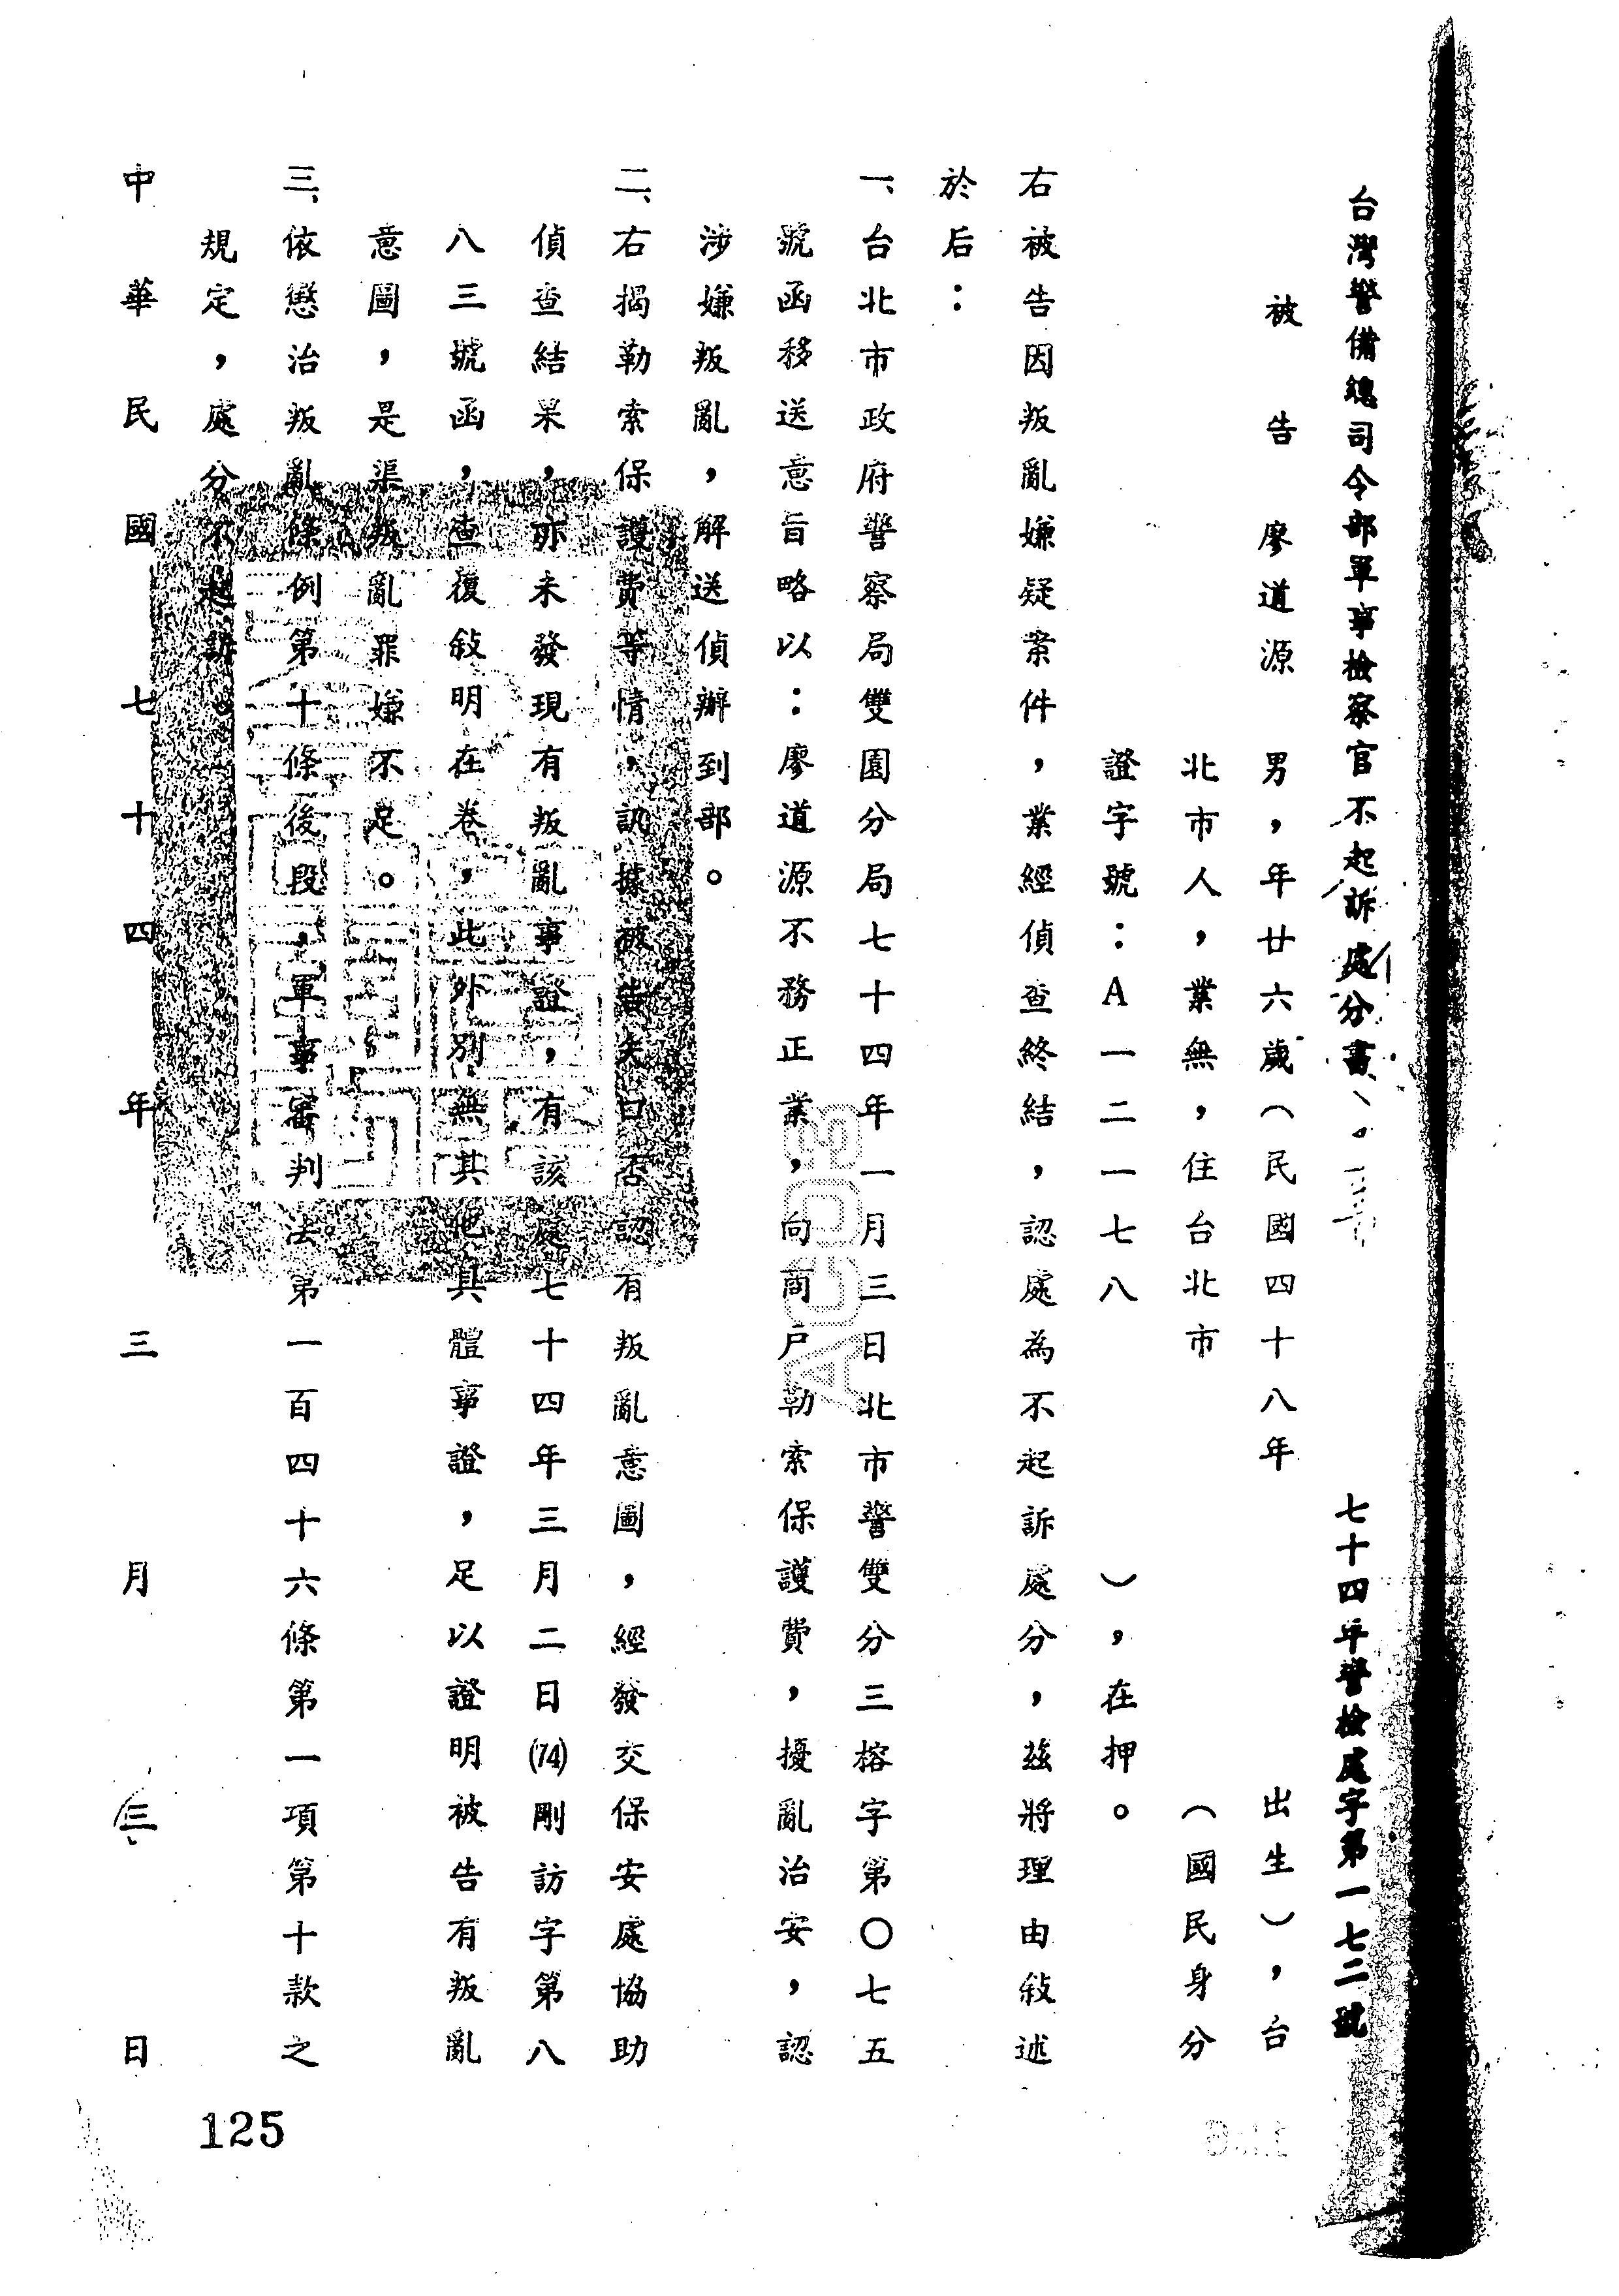 台灣警備總司令部軍事檢察官不起訴處分書
七十四年警檢處字第一七二號
被告 廖道源 男，年廿六歲（民國四十八年 出生），台
北市人，業無，住台北市 （國民身分
證字號：A一二二一七八 ），在押。
右被告因叛亂嫌疑案件，業經偵查終結，認處為不起訴處分，茲將理由敍述
於后：
一、台北市政府警察局雙園分局七十四年一月三日北市警雙分三榕字第〇七五
號函移送意旨略以：廖道源不務正業，向商戶勒索保護費，擾亂治安，認
涉嫌叛亂，解送偵辦到部。
二、右揭勒索保護費等情，訊據被告矢口否認有叛亂意圖，經發交保安處協助
偵查結果，亦未發現有叛亂事證，有該處七十四年三月二日(74)剛訪字第八
八三號函，查復敍明在卷，此外別無其他具體事證，足以證明被告有叛亂
意圖，是渠叛亂罪嫌不足。
三、依懲治叛亂條例第十條後段，軍事審判法第一百四十六條第一項第十款之
規定，處分不起訴。
中華民國七十四年三月三日
125
ACDB